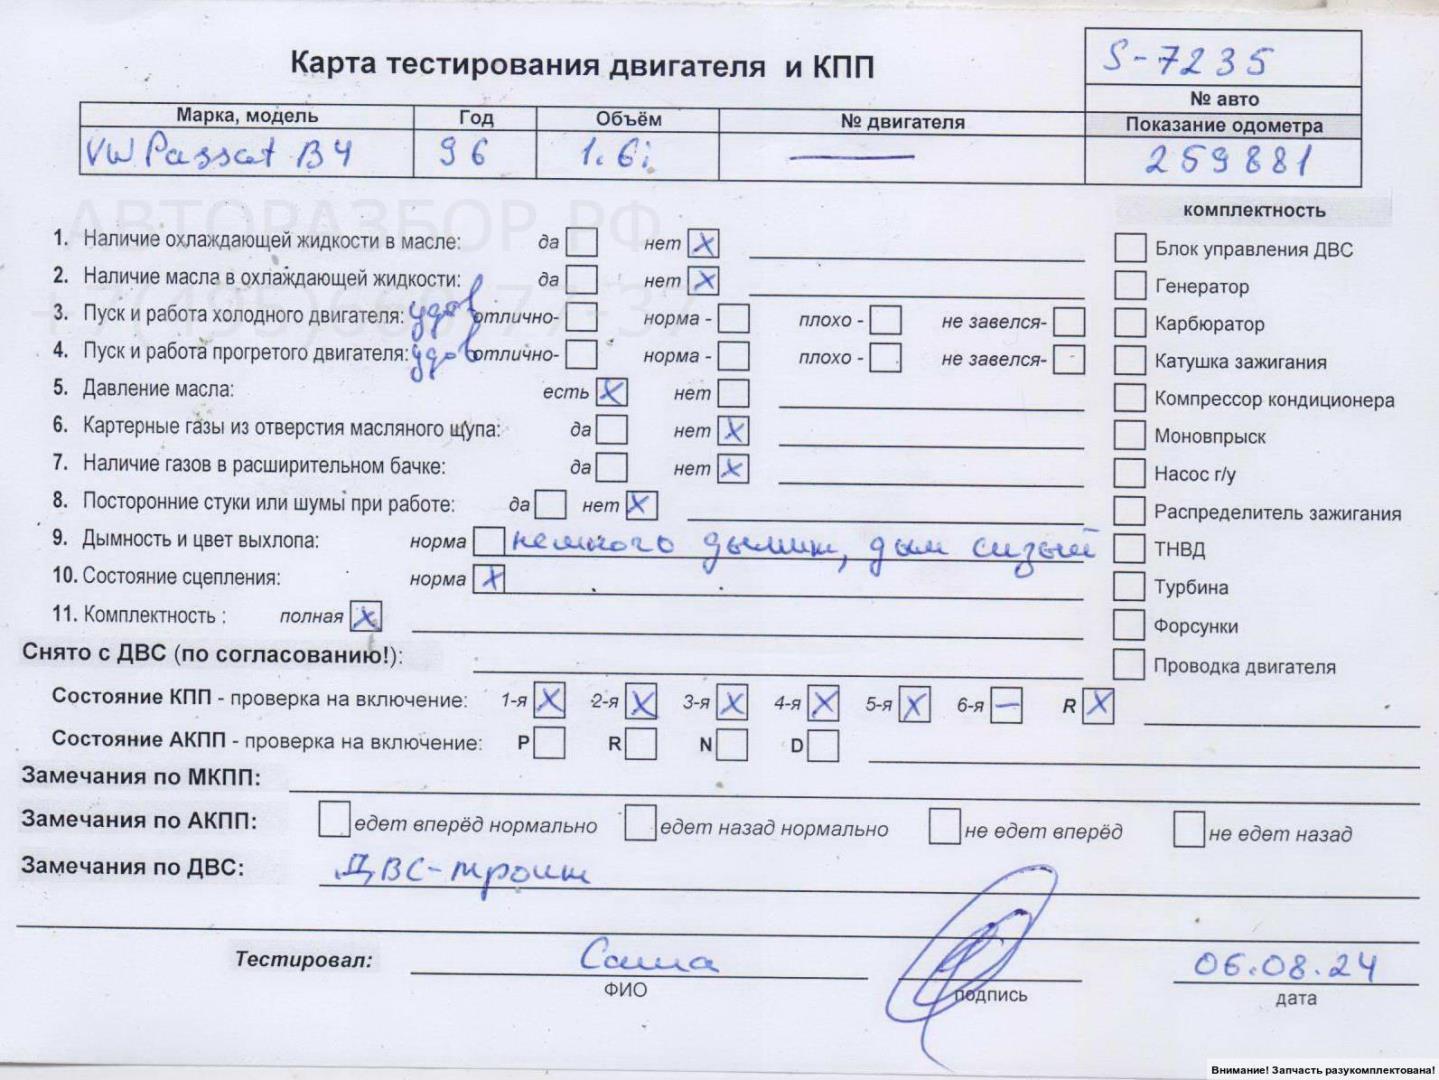 Карта тестирования двигателя и КПП
S-7235
№ авто
Марка, модель Год Объём № двигателя Показание одометра
VW Passat B4 96 1.6i — 259881
АВТОРАЗБОР.РФ
комплектность
1. Наличие охлаждающей жидкости в масле: да нет X
Блок управления ДВС
2. Наличие масла в охлаждающей жидкости: да нет X
Генератор
3. Пуск и работа холодного двигателя: удов отлично- норма - плохо - не завелся-
Карбюратор
4. Пуск и работа прогретого двигателя: удов отлично- норма - плохо - не завелся-
Катушка зажигания
5. Давление масла: есть X нет
Компрессор кондиционера
6. Картерные газы из отверстия масляного щупа: да нет X
Моновпрыск
7. Наличие газов в расширительном бачке: да нет X
Насос г/у
8. Посторонние стуки или шумы при работе: да нет X
Распределитель зажигания
9. Дымность и цвет выхлопа: норма немного дымит, дым сизый
ТНВД
10. Состояние сцепления: норма X
Турбина
11. Комплектность : полная X
Форсунки
Снято с ДВС (по согласованию!):
Проводка двигателя
Состояние КПП - проверка на включение: 1-я X 2-я X 3-я X 4-я X 5-я X 6-я — R X
Состояние АКПП - проверка на включение: P R N D
Замечания по МКПП:
Замечания по АКПП: едет вперёд нормально едет назад нормально не едет вперёд не едет назад
Замечания по ДВС: ДВС-троит
Тестировал: Саша 06.08.24
ФИО подпись дата
Внимание! Запчасть разукомплектована!